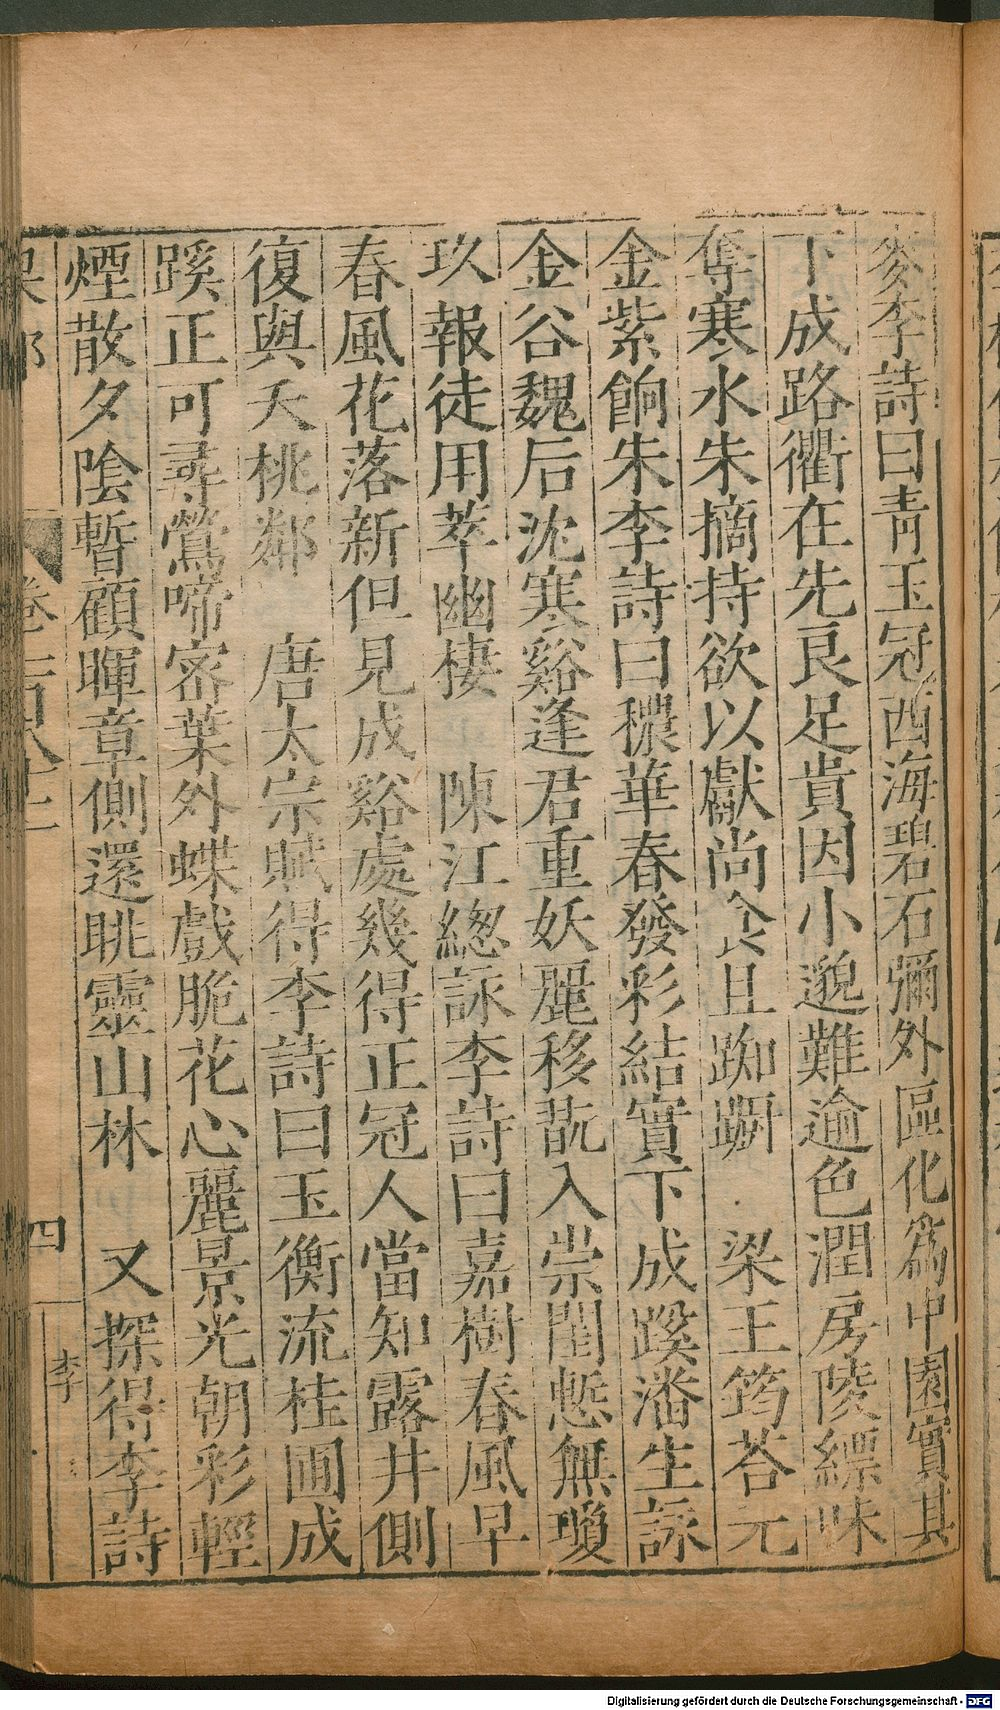 麥李詩曰青玉冠西海碧石彌外區化爲中園實其
下成路衢在先良足貴因小邈難逾色潤房陵縹味
奪寒水朱摘持欲以獻尚食且踟躕　梁王筠荅元
金紫餉朱李詩曰穠華春發彩結實下成蹊潘生詠
金谷魏后沈寒谿逢君重妖麗移翫入崇閨慙無瓊
玖報徒用萃幽棲　陳江緫詠李詩曰嘉樹春風早
春風花落新但見成谿處幾得正冠人當知露井側
復與夭桃鄰　唐太宗賦得李詩曰玉衡流桂圃成
蹊正可尋鶯啼密葉外蝶戲脆花心麗景光朝彩輕
煙散夕陰暫顧暉章側還眺靈山林　又探得李詩
四
李
Digitalisierung gefördert durch die Deutsche Forschungsgemeinschaft - DFG